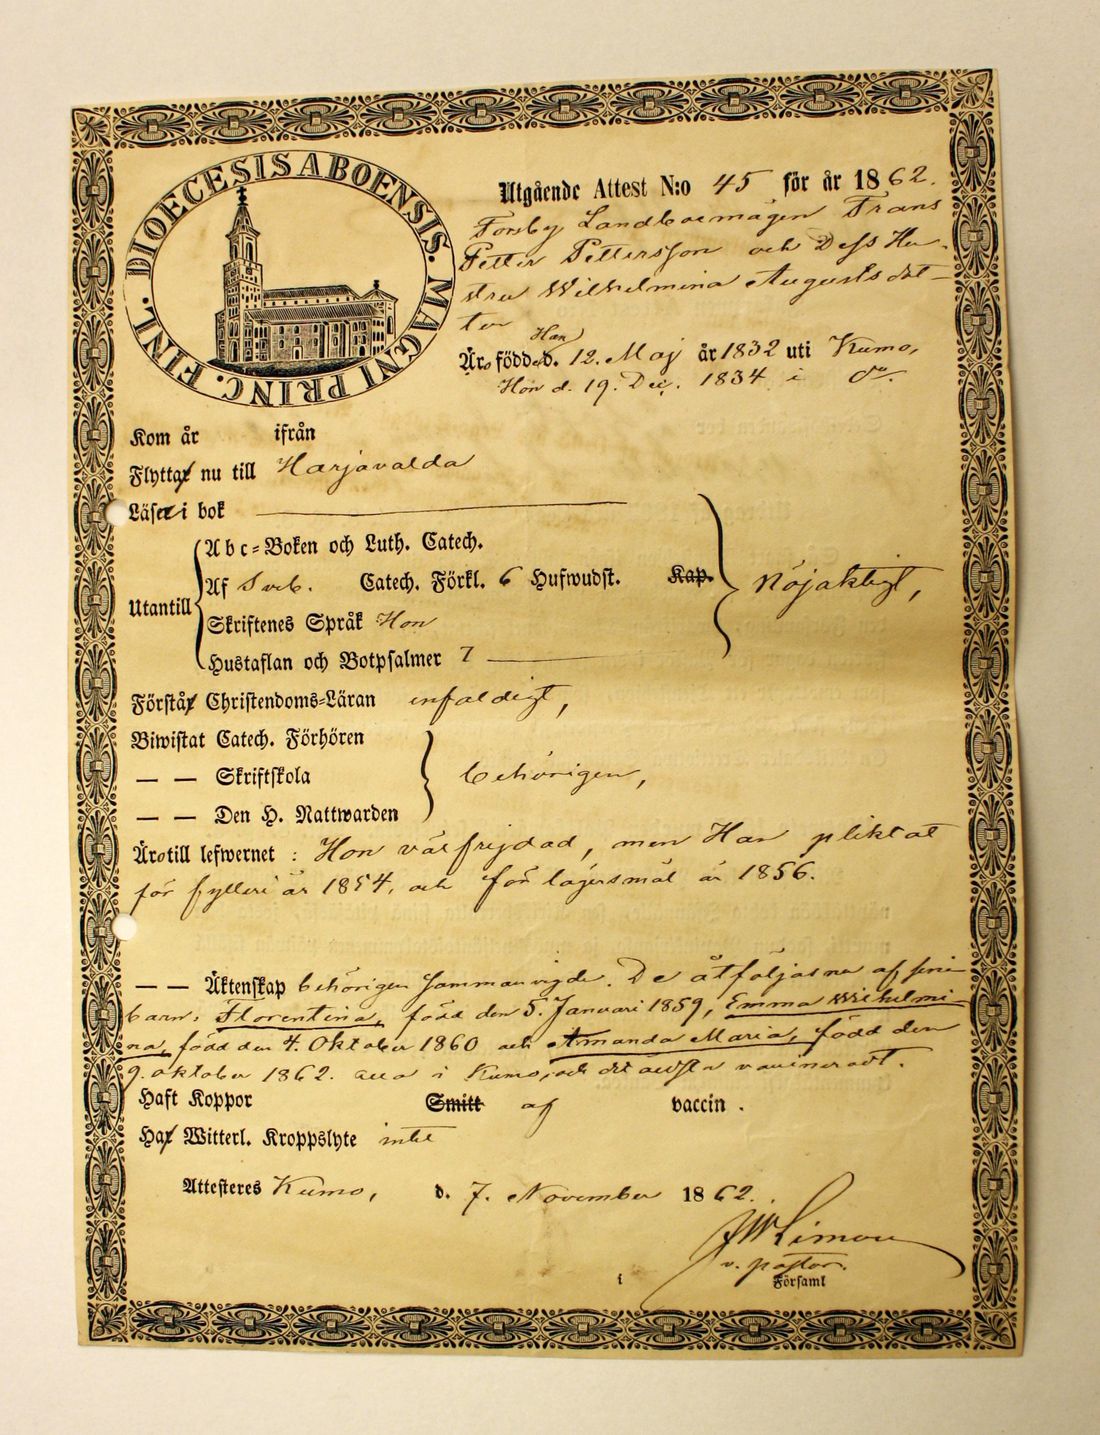 DIOECESIS ABOENSIS. MAGNI PRINC. FINL.
Utgående Attest N:o 45 för år 1862.
Forsby Landboemågen Frans
Petter Pettersson och Dess Hu-
stru Wilhelmina Augustsdot-
ter
Han
Äro född d. 12. Maj år 1832 uti Kumo,
Hon d. 19. Dec. 1834 i do.
Kom år ifrån
Flytta nu till Harjavalda
Läser i bok
Abc=Boken och Luth. Catech.
Utantill Af Sveb. Catech. Förkl. 6 Hufwudst. Kap. Nöjaktigt,
Skriftenes Språk Hon
Hustaflan och Botpsalmer 7
Förstå Christendoms=Läran enfaldigt,
Biwistat Catech. Förhören
— — Skriftskola behörigen,
— — Den H. Nattwarden
Äro till lefwernet : Hon välfrejdad, men Han pliktat
för fylleri år 1854, och för lägersmål år 1856.
— — Äktenskap behörigen sammanvigde. De åtföljas nu af sina
barn: Florentina, född den 5. Januari 1859, Emma Wilhelmi
na, född den 4. Oktober 1860 och Amanda Maria, född den
9. oktober 1862. alla i Kumo, och det äldsta vaccineradt.
Haft Koppor Smitt af vaccin.
Ha Witterl. Kroppslyte intet
Attesteres Kumo, d. 7. November 1862.
v. pastor.
i Församl